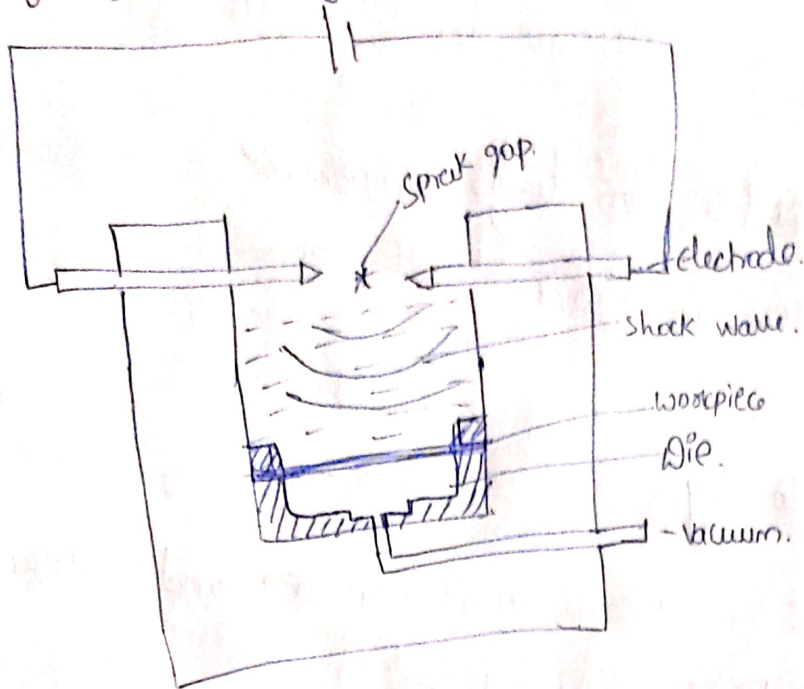 Sprak gap.
electrode.
Shock walle.
workpiece
Die.
- vacuum.